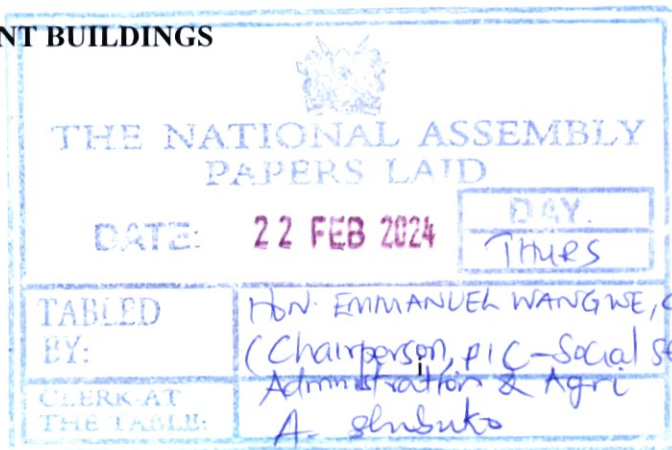 NT BUILDINGS
THE NATIONAL ASSEMBLY
PAPERS LAID
DATE: 22 FEB 2024
DAY.
THURS
TABLED BY:
HON. EMMANUEL WANGWE, C
(Chairperson, PIC-Social Se
Administration & Agri
CLERK-AT THE-TABLE:
A. Shibuko